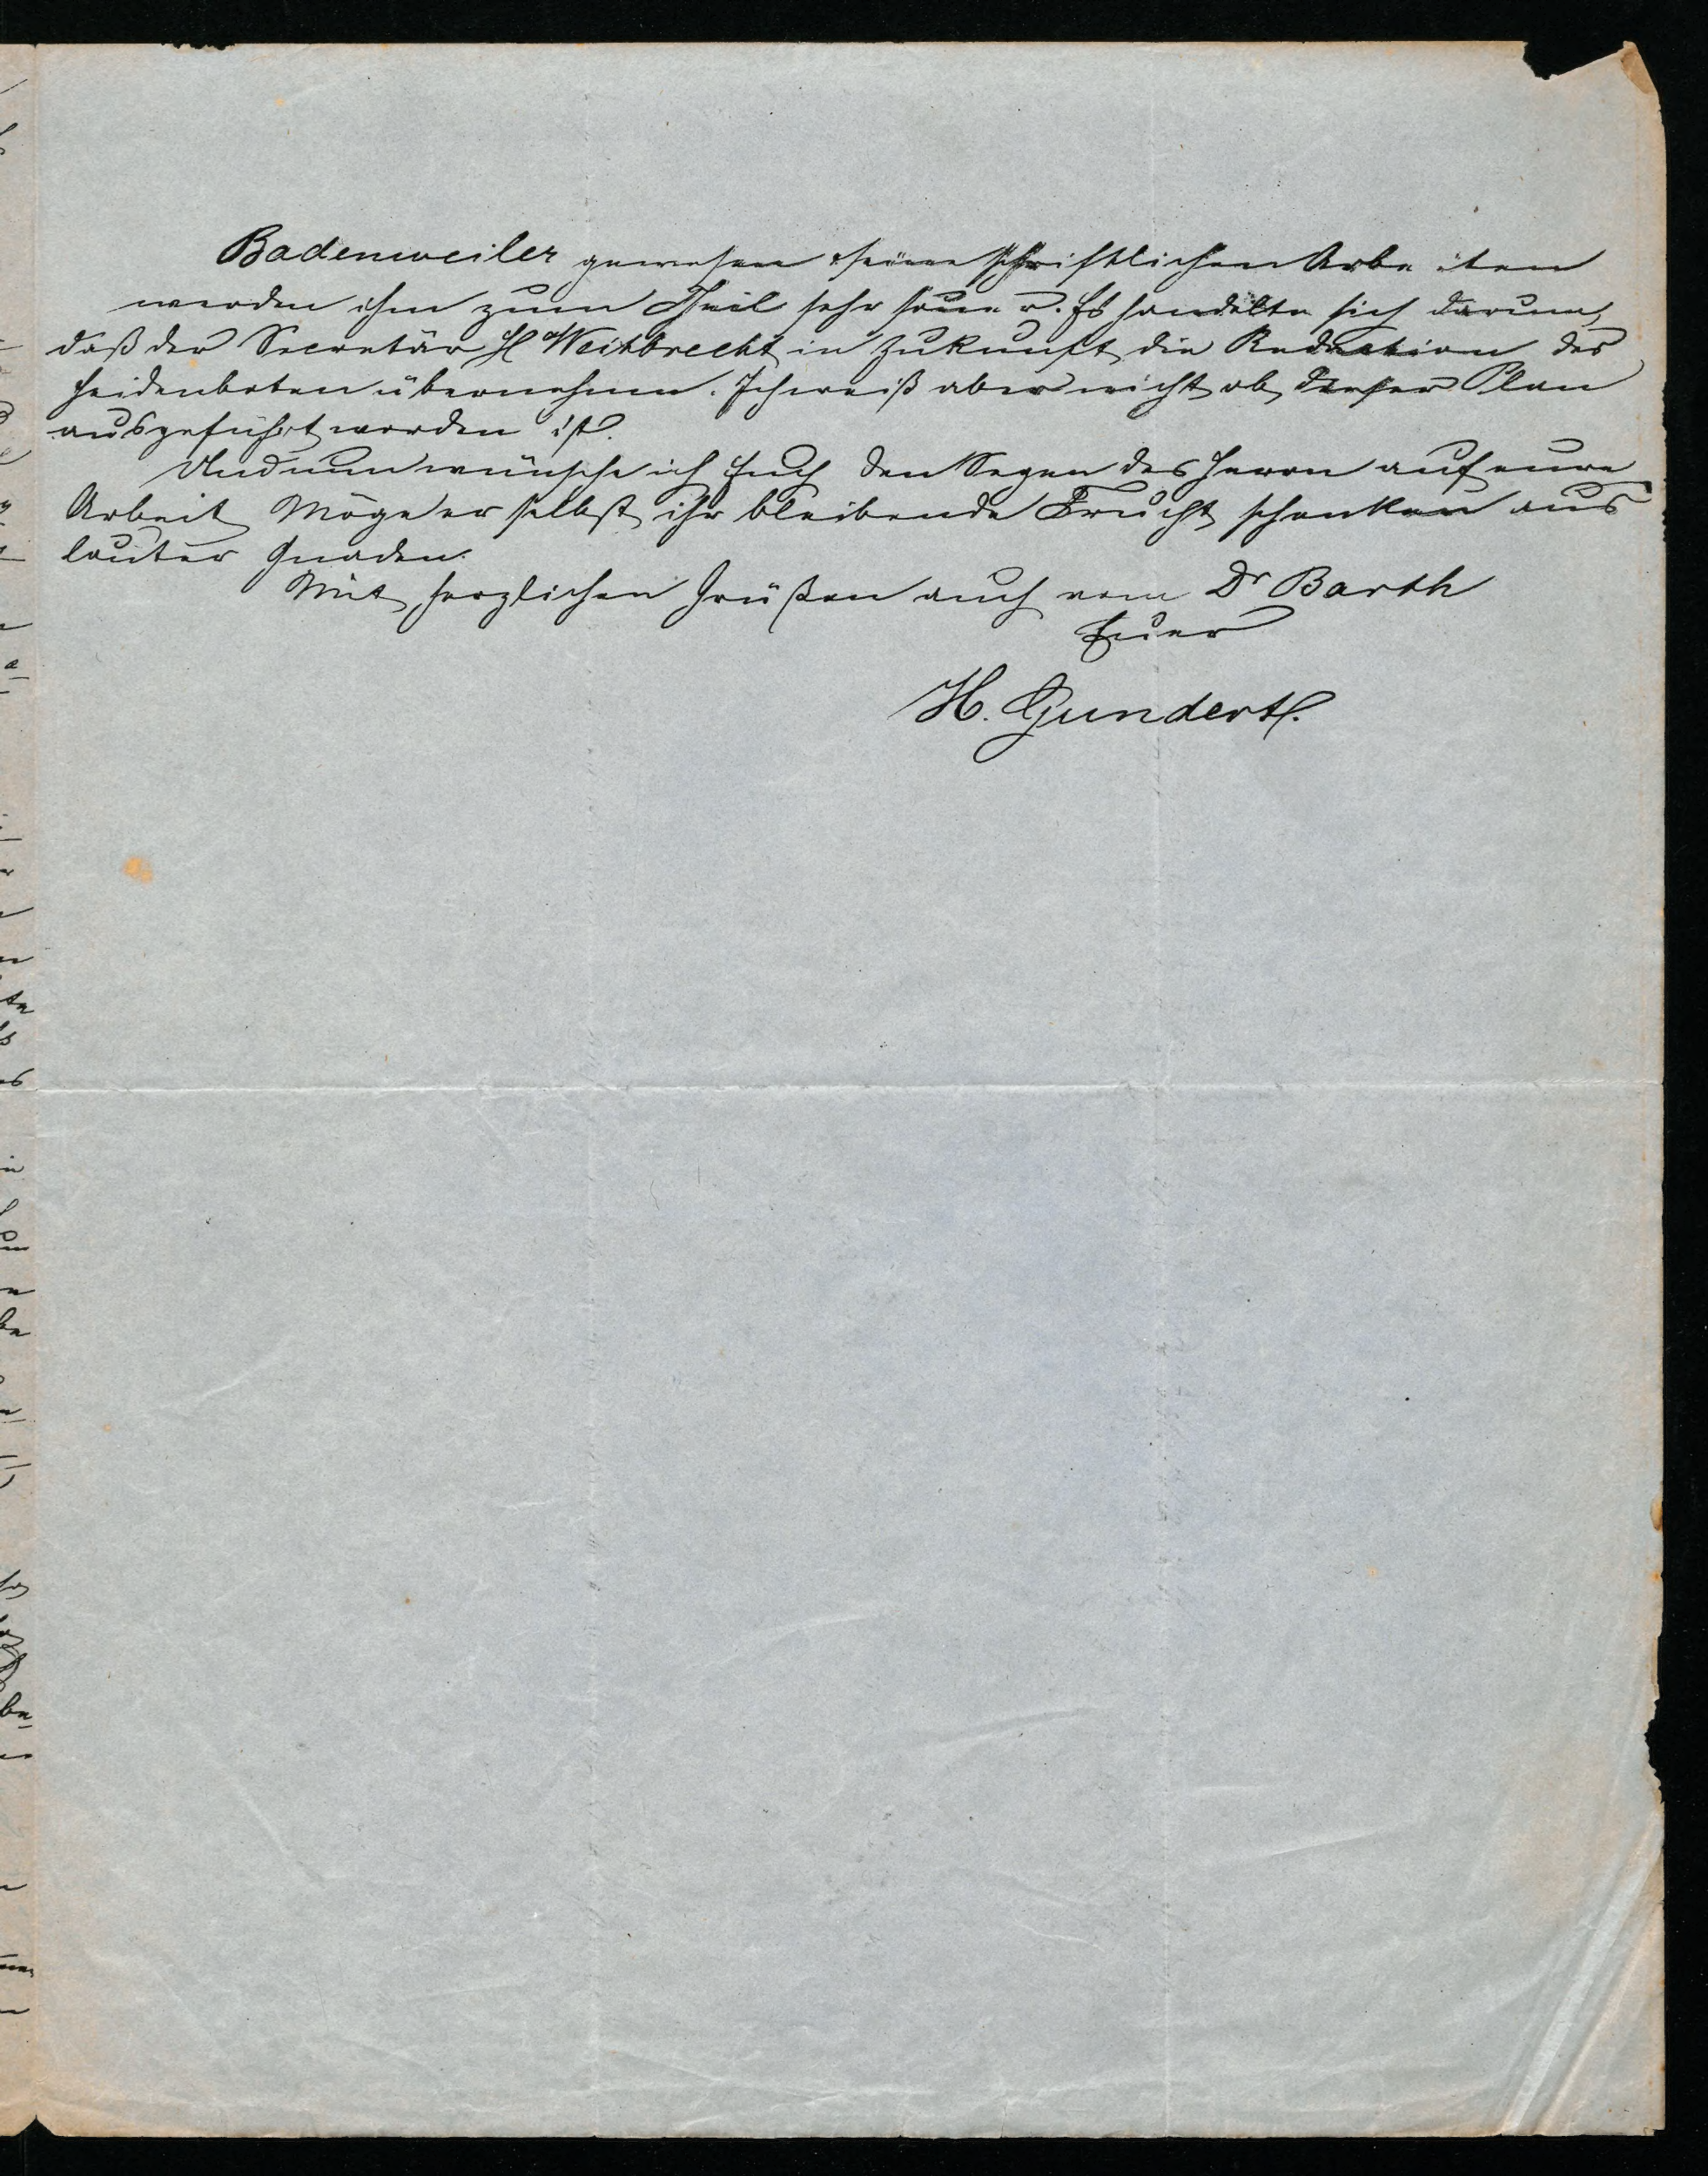 Badenweiler gewesen seine schriftlichen Arbeiten
werden ihm zum Theil sehr sauer. Es handelte sich darum,
daß der Secretär H Weitbrecht in Zukunft die Redaction des
Heidenboten übernehme. Ich weiß aber nicht ob dieser Plan
ausgeführt worden ist.
Und nun wünsche ich Euch den Segen des Herrn auf eure
Arbeit Möge er selbst ihr bleibende Frucht schenken aus
lauter Gnaden.
Mit herzlichen Grüßen auch vom Dr Barth
Euer
H. Gundert.